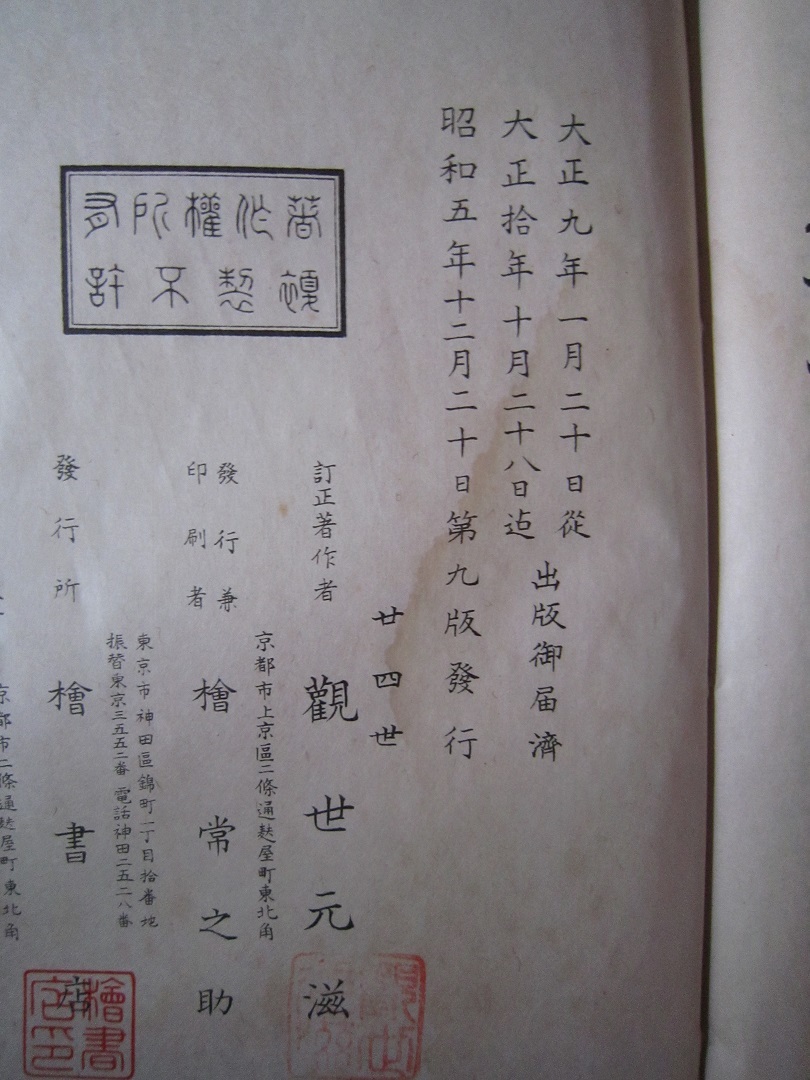 大正九年一月二十日從
大正拾年十月二十八日迠
出版御届濟
昭和五年十二月二十日第九版發行
著作權所有
不許複製
廿四世
訂正著作者 觀世元滋
京都市上京區二條通麩屋町東北角
發行兼
印刷者 檜常之助
東京市神田區錦町一丁目拾番地
振替東京三五五二番 電話神田二五二八番
發行所 檜書店
京都市二條通麩屋町東北角
檜書
店印